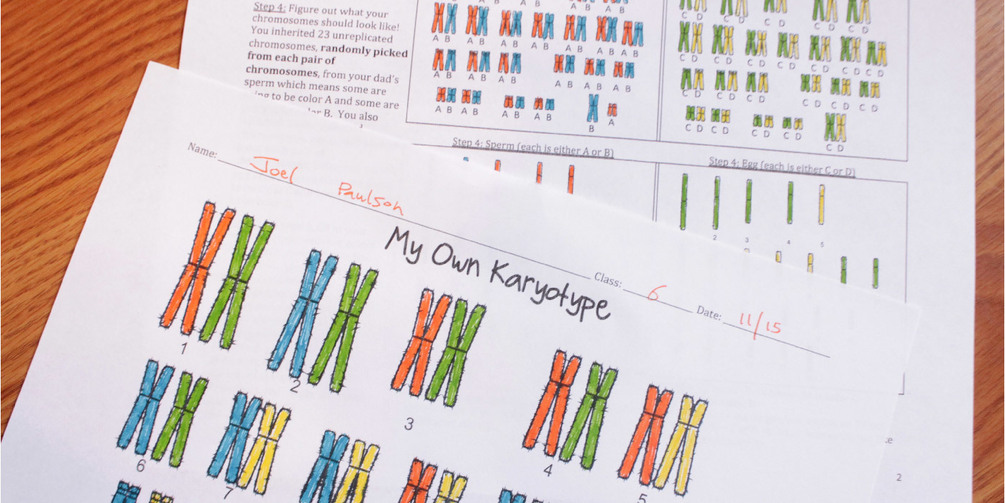 Step 4: Figure out what your
chromosomes should look like!
You inherited 23 unreplicated
chromosomes, randomly picked
from each pair of
chromosomes, from your dad's
sperm which means some are
to be color A and some are
B. You also
A B A B A B A B A B A B A B
A B A B A B A B A B A B
A B A B A B A B B A
C D C D C D C D C D
C D C D C D C D C D C D C D
C D C D C D C D C D C D
C D C D C D C D C D
Step 4: Sperm (each is either A or B)
Step 4: Egg (each is either C or D)
2 3 4 5
Name: Joel Paulson
Class: 6 Date: 11/15
My Own Karyotype
1 2 3 4 5
6 7
2